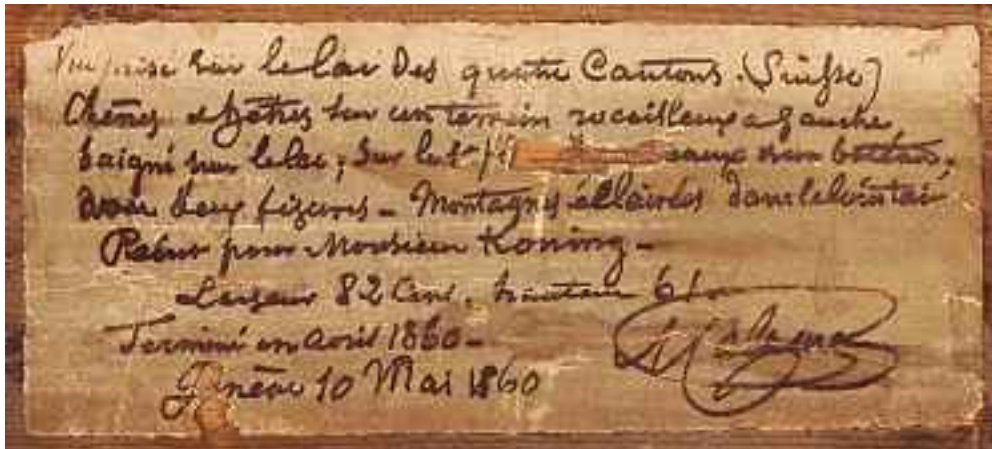 Vue prise sur le lac Des quatre Cantons. (Suisse)
Chênes et hêtres sur un terrain rocailleux a gauche,
baigné sur le lac; Sur le
deux figures - Montagnes éclairées dans le lointain
Peint pour Monsieur Koning -
Largeur 82 Cent. hauteur 61
Terminé en avril 1860 -
Genève 10 Mai 1860